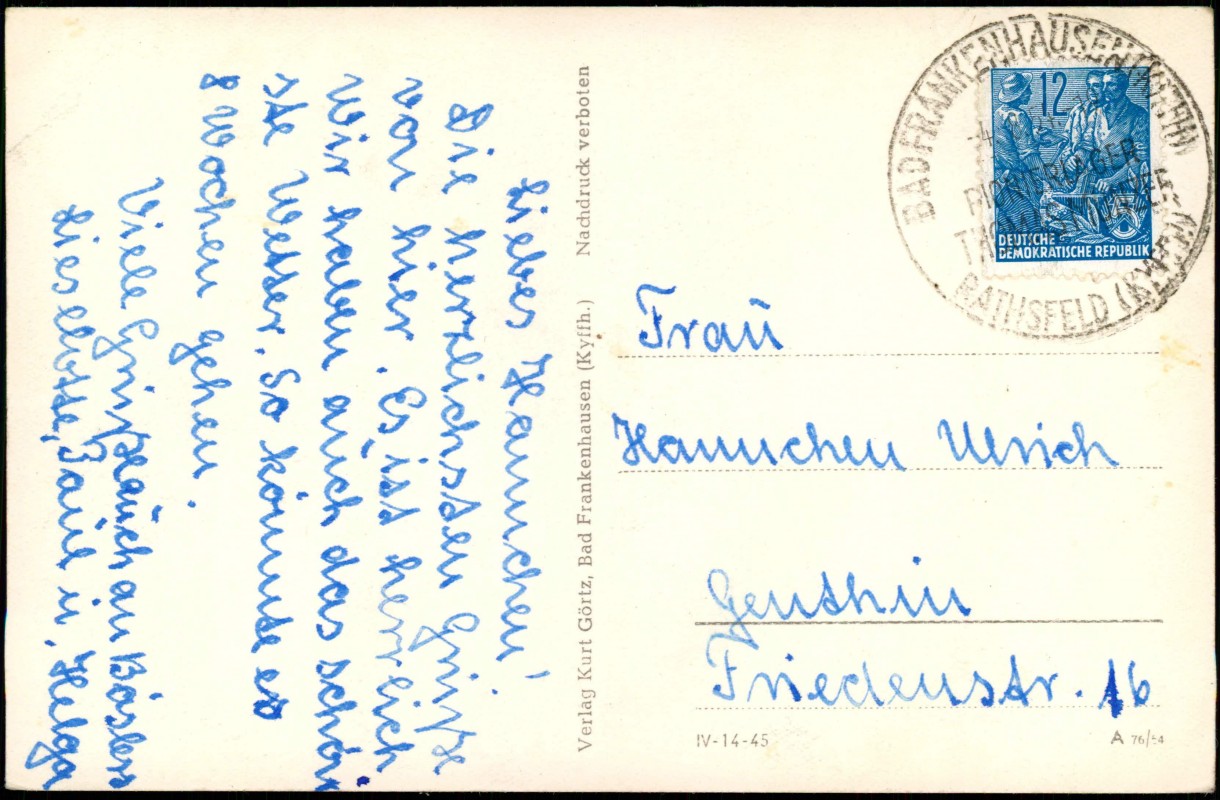 Liebes Hannchen!
Die herzlichsten Grüße
von hier. Es ist herrlich
Wir haben auch das schön
ste Wetter. So könnte es
8 Wochen gehen.
Viele Grüße auch an Böslers
Lieselotte, Paul u. Helga
Verlag Kurt Görtz, Bad Frankenhausen (Kyffh.) Nachdruck verboten
BAD FRANKENHAUSEN (KYFFH)
PIONIERLAGER
THOMAS MÜNTZER
RATHSFELD (KYFFH)
12
DEUTSCHE
DEMOKRATISCHE REPUBLIK
Frau
Hannchen Ulrich
Genthin
Friedenstr. 16
IV-14-45
A 76/54